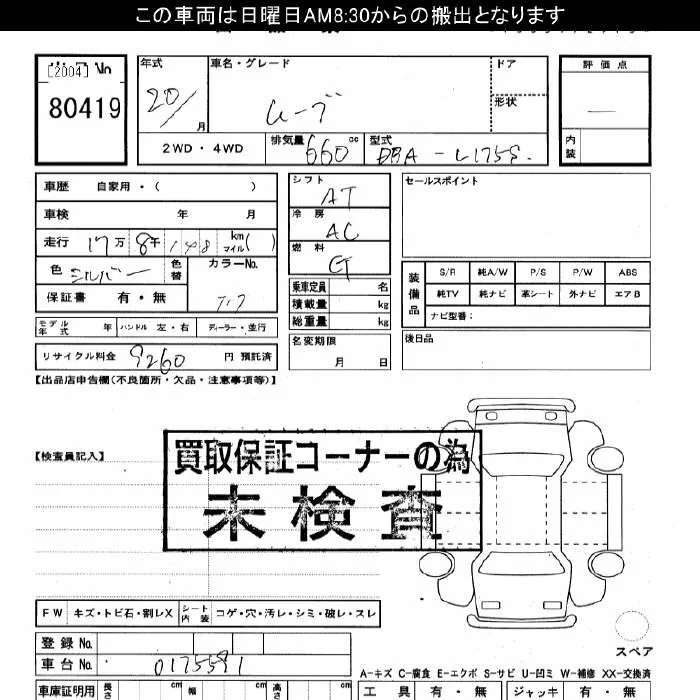 この車両は日曜日AM8:30からの搬出となります
[2004]
80419
年式 20/ 月
車名・グレード ムーブ
ドア
形状
評価点
内装
2WD・4WD
排気量 660 cc
型式 DBA-L175S
車歴 自家用・( )
車検 年 月
走行 17万 8千 148 km マイル( )
色 シルバー 色替 カラーNo.
保証書 有・無 T17
モデル年式 年 ハンドル 左・右 ディーラー・並行
リサイクル料金 9260 円 預託済
シフト AT
冷房 AC
燃料 G
乗車定員 名
積載量 kg
総重量 kg
名変期限 月 日
セールスポイント
装備品
S/R 純A/W P/S P/W ABS
純TV 純ナビ 革シート 外ナビ エアB
ナビ型番:
後日品
【出品店申告欄(不良箇所・欠品・注意事項等)】
【検査員記入】
買取保証コーナーの為
未検査
FW キズ・トビ石・割レX シート内装 コゲ・穴・汚レ・シミ・破レ・スレ
登録No.
車台No. 0175591
スペア
A-キズ C-腐食 E-エクボ S-サビ U-凹ミ W-補修 XX-交換済
車庫証明用 長さ cm 幅 cm 高さ cm
工具 有・無 ジャッキ 有・無